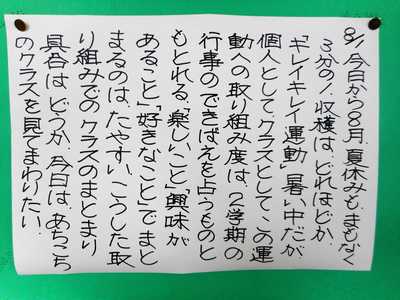 8/1 今日から8月.夏休みも.まもなく
3分の1.収穫は.どれほどか.
「キレイキレイ運動」.暑い中だが
個人として.クラスとして.この運
動への取り組み度は.2学期の
行事のできばえを占うものと
もとれる.「楽しいこと」「興味が
あること」「好きなこと」でまと
まるのは.たやすい.こうした取
り組みでのクラスのまとまり
具合は.どうか.今日は.あちこち
のクラスを見てまわりたい.